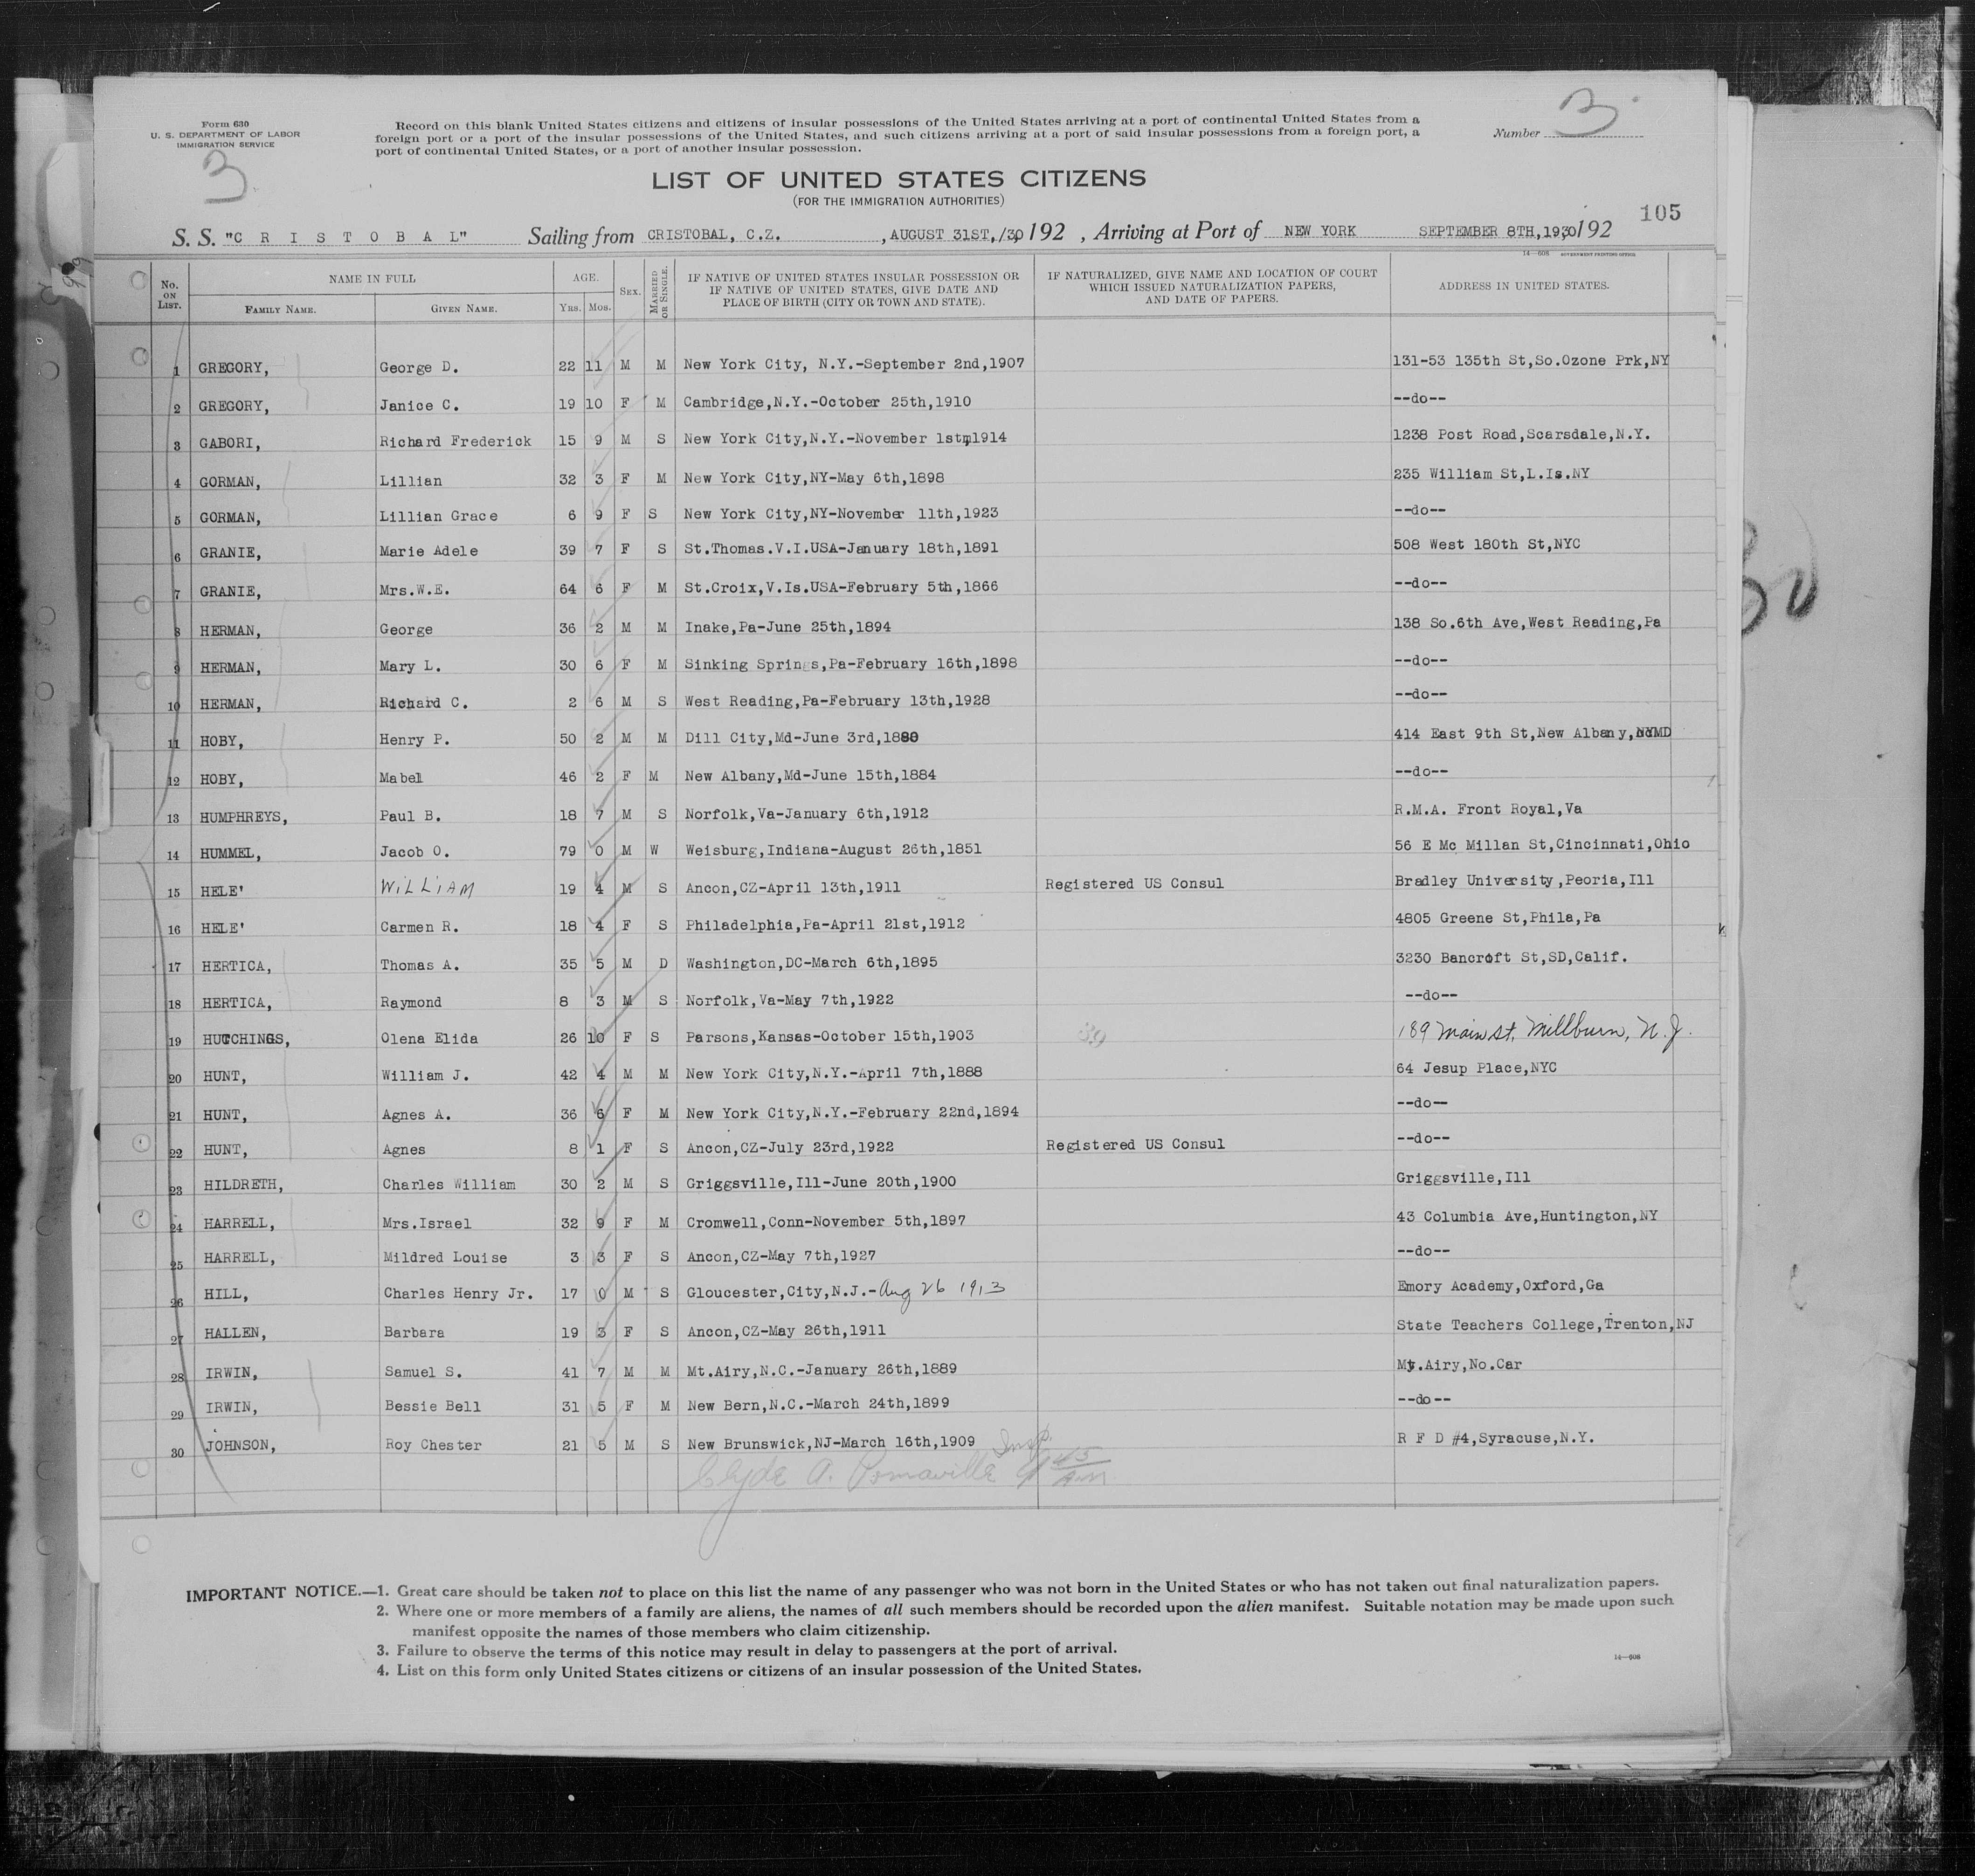 Form 630
U. S. DEPARTMENT OF LABOR
IMMIGRATION SERVICE
3
Record on this blank United States citizens and citizens of insular possessions of the United States arriving at a port of continental United States from a
foreign port or a port of the insular possessions of the United States, and such citizens arriving at a port of said insular possessions from a foreign port, a
port of continental United States, or a port of another insular possession.
Number 3
LIST OF UNITED STATES CITIZENS
(FOR THE IMMIGRATION AUTHORITIES)
105
S. S. "C R I S T O B A L" Sailing from CRISTOBAL, C.Z. , AUGUST 31ST,/30 192 , Arriving at Port of NEW YORK SEPTEMBER 8TH,1930 192
14—608 GOVERNMENT PRINTING OFFICE
No. ON LIST. NAME IN FULL FAMILY NAME. GIVEN NAME. AGE. YRS. MOS. SEX. MARRIED OR SINGLE. IF NATIVE OF UNITED STATES INSULAR POSSESSION OR IF NATIVE OF UNITED STATES, GIVE DATE AND PLACE OF BIRTH (CITY OR TOWN AND STATE). IF NATURALIZED, GIVE NAME AND LOCATION OF COURT WHICH ISSUED NATURALIZATION PAPERS, AND DATE OF PAPERS. ADDRESS IN UNITED STATES.
1 GREGORY, George D. 22 11 M M New York City, N.Y.-September 2nd,1907 131-53 135th St,So.Ozone Prk,NY
2 GREGORY, Janice C. 19 10 F M Cambridge,N.Y.-October 25th,1910 --do--
3 GABORI, Richard Frederick 15 9 M S New York City,N.Y.-November 1st,1914 1238 Post Road,Scarsdale,N.Y.
4 GORMAN, Lillian 32 3 F M New York City,NY-May 6th,1898 235 William St,L.Is.NY
5 GORMAN, Lillian Grace 6 9 F S New York City,NY-November 11th,1923 --do--
6 GRANIE, Marie Adele 39 7 F S St.Thomas.V.I.USA-January 18th,1891 508 West 180th St,NYC
7 GRANIE, Mrs.W.E. 64 6 F M St.Croix,V.Is.USA-February 5th,1866 --do--
8 HERMAN, George 36 2 M M Inake,Pa-June 25th,1894 138 So.6th Ave,West Reading,Pa
9 HERMAN, Mary L. 30 6 F M Sinking Springs,Pa-February 16th,1898 --do--
10 HERMAN, Richard C. 2 6 M S West Reading,Pa-February 13th,1928 --do--
11 HOBY, Henry P. 50 2 M M Dill City,Md-June 3rd,1880 414 East 9th St,New Albany,MD
12 HOBY, Mabel 46 2 F M New Albany,Md-June 15th,1884 --do--
13 HUMPHREYS, Paul B. 18 7 M S Norfolk,Va-January 6th,1912 R.M.A. Front Royal,Va
14 HUMMEL, Jacob O. 79 0 M W Weisburg,Indiana-August 26th,1851 56 E Mc Millan St,Cincinnati,Ohio
15 HELE' WILLIAM 19 4 M S Ancon,CZ-April 13th,1911 Registered US Consul Bradley University,Peoria,Ill
16 HELE' Carmen R. 18 4 F S Philadelphia,Pa-April 21st,1912 4805 Greene St,Phila,Pa
17 HERTICA, Thomas A. 35 5 M D Washington,DC-March 6th,1895 3230 Bancroft St,SD,Calif.
18 HERTICA, Raymond 8 3 M S Norfolk,Va-May 7th,1922 --do--
19 HUTCHINGS, Olena Elida 26 10 F S Parsons,Kansas-October 15th,1903 39 189 Main St. Millburn, N.J.
20 HUNT, William J. 42 4 M M New York City,N.Y.-April 7th,1888 64 Jesup Place,NYC
21 HUNT, Agnes A. 36 6 F M New York City,N.Y.-February 22nd,1894 --do--
22 HUNT, Agnes 8 1 F S Ancon,CZ-July 23rd,1922 Registered US Consul --do--
23 HILDRETH, Charles William 30 2 M S Griggsville,Ill-June 20th,1900 Griggsville,Ill
24 HARRELL, Mrs.Israel 32 9 F M Cromwell,Conn-November 5th,1897 43 Columbia Ave,Huntington,NY
25 HARRELL, Mildred Louise 3 3 F S Ancon,CZ-May 7th,1927 --do--
26 HILL, Charles Henry Jr. 17 0 M S Gloucester,City,N.J.-Aug 26 1913 Emory Academy,Oxford,Ga
27 HALLEN, Barbara 19 3 F S Ancon,CZ-May 26th,1911 State Teachers College,Trenton,NJ
28 IRWIN, Samuel S. 41 7 M M Mt.Airy,N.C.-January 26th,1889 Mt.Airy,No.Car
29 IRWIN, Bessie Bell 31 5 F M New Bern,N.C.-March 24th,1899 --do--
30 JOHNSON, Roy Chester 21 5 M S New Brunswick,NJ-March 16th,1909 R F D #4,Syracuse,N.Y.
Clyde A. Pomaville Insp. 9 45 AM
IMPORTANT NOTICE.—1. Great care should be taken not to place on this list the name of any passenger who was not born in the United States or who has not taken out final naturalization papers.
2. Where one or more members of a family are aliens, the names of all such members should be recorded upon the alien manifest. Suitable notation may be made upon such
manifest opposite the names of those members who claim citizenship.
3. Failure to observe the terms of this notice may result in delay to passengers at the port of arrival.
4. List on this form only United States citizens or citizens of an insular possession of the United States.
14—608